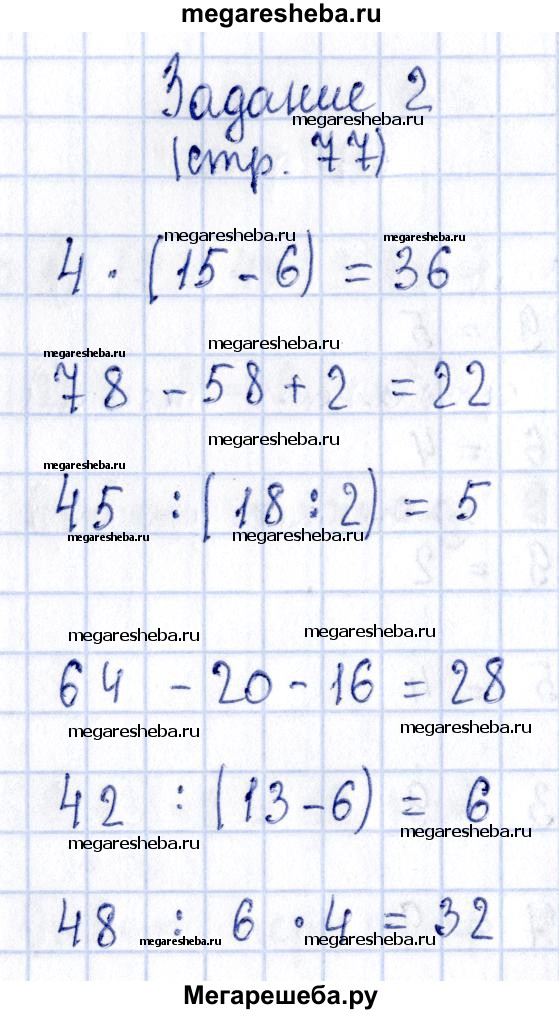 megaresheba.ru
Задание 2
megaresheba.ru
(стр. 77)
megaresheba.ru megaresheba.ru
4 · (15 - 6) = 36
megaresheba.ru megaresheba.ru
78 - 58 + 2 = 22
megaresheba.ru
45 : (18 : 2) = 5
megaresheba.ru megaresheba.ru
megaresheba.ru megaresheba.ru
64 - 20 - 16 = 28
megaresheba.ru megaresheba.ru
42 : (13 - 6) = 6
megaresheba.ru megaresheba.ru
48 : 6 · 4 = 32
megaresheba.ru megaresheba.ru
Мегарешеба.ру